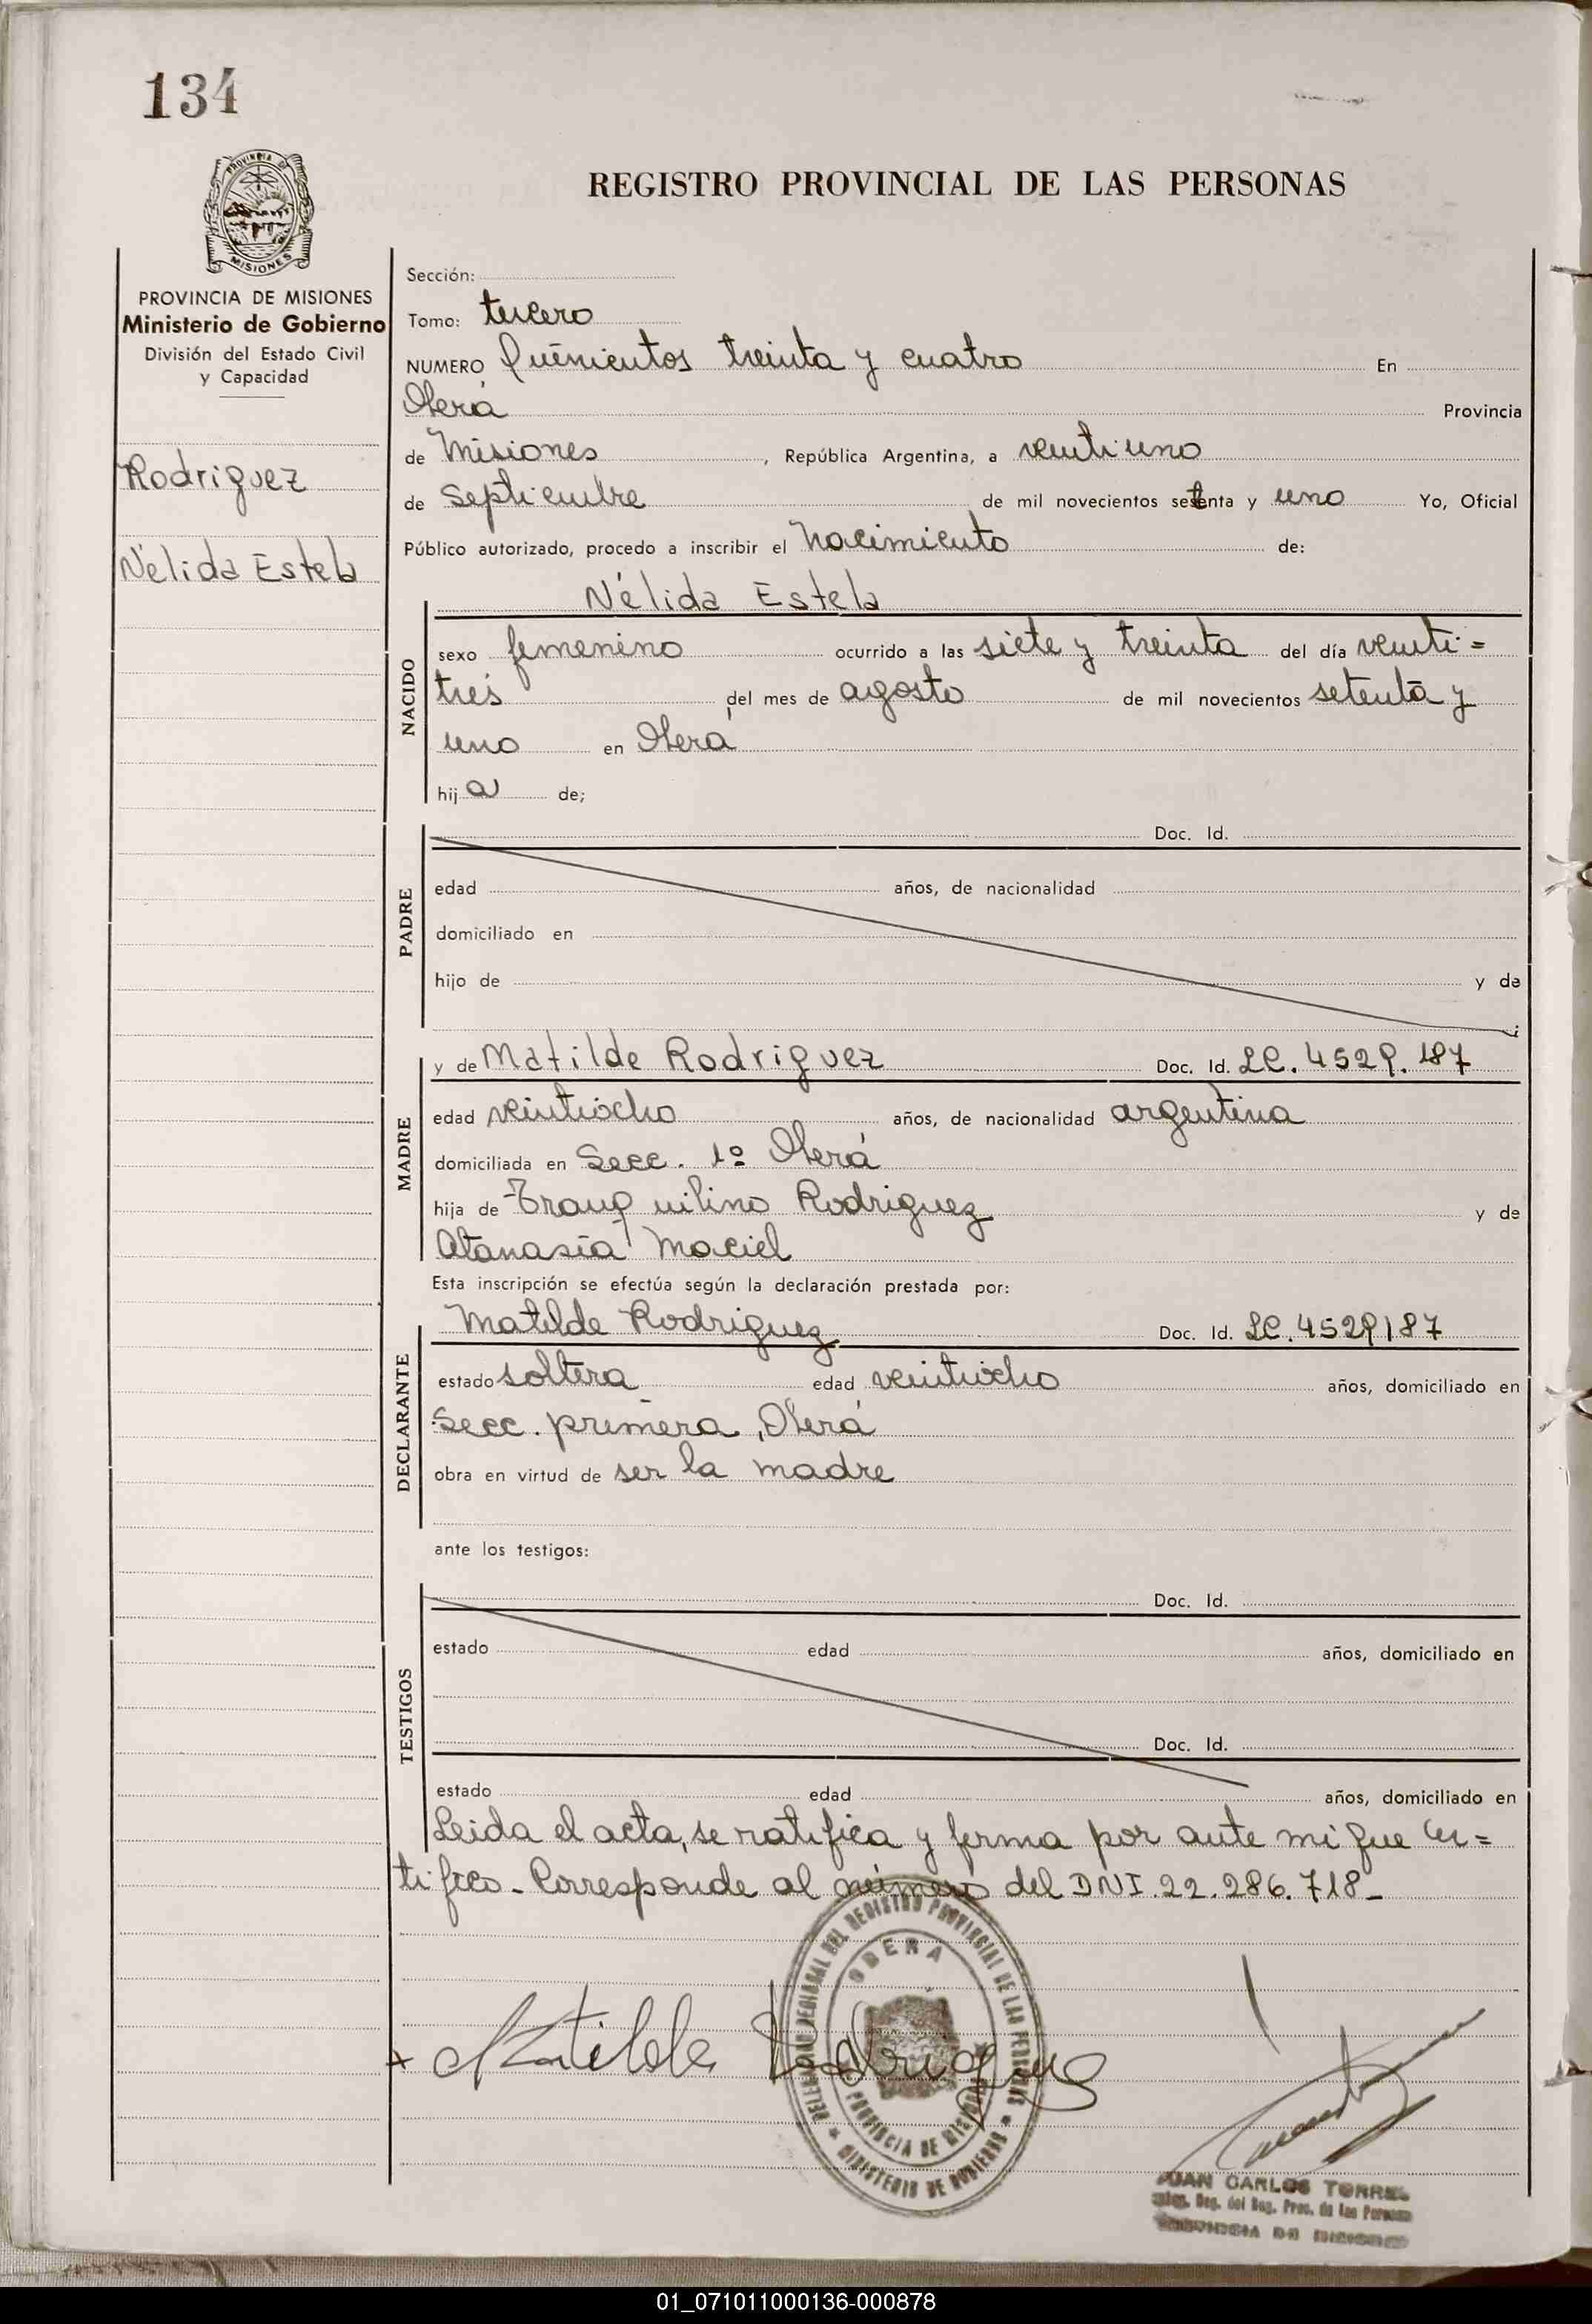 134
PROVINCIA DE
MISIONES
REGISTRO PROVINCIAL DE LAS PERSONAS
PROVINCIA DE MISIONES
Ministerio de Gobierno
División del Estado Civil
y Capacidad
Rodriguez
Nélida Estela
Sección:
Tomo: tercero
NUMERO Quinientos treinta y cuatro En
Oberá Provincia
de Misiones, República Argentina, a veintiuno
de septiembre de mil novecientos setenta y uno Yo, Oficial
Público autorizado, procedo a inscribir el nacimiento de:
Nélida Estela
NACIDO
sexo femenino ocurrido a las siete y treinta del día veinti=
trés del mes de agosto de mil novecientos setenta y
uno en Oberá
hija de;
PADRE
Doc. Id.
edad años, de nacionalidad
domiciliado en
hijo de y de
MADRE
y de Matilde Rodriguez Doc. Id. LC. 4529.187
edad veintiocho años, de nacionalidad argentina
domiciliada en Secc. 1º Oberá
hija de Tranquilino Rodriguez y de
Atanasia Maciel
Esta inscripción se efectúa según la declaración prestada por:
DECLARANTE
Matilde Rodriguez Doc. Id. LC. 4529187
estado soltera edad veintiocho años, domiciliado en
Secc. primera, Oberá
obra en virtud de ser la madre
ante los testigos:
TESTIGOS
Doc. Id.
estado edad años, domiciliado en
Doc. Id.
estado edad años, domiciliado en
Leida el acta, se ratifica y firma por ante mi que cer=
tifico. Corresponde al número del DNI. 22.286.718-
DELEGACION REGIONAL DEL REGISTRO PROVINCIAL DE LAS PERSONAS
OBERA
PROVINCIA DE MISIONES
MINISTERIO DE GOBIERNO
x Matilde Rodriguez
JUAN CARLOS TORRES
Reg. del Reg. Prov. de las Personas
PROVINCIA DE MISIONES
01_071011000136-000878